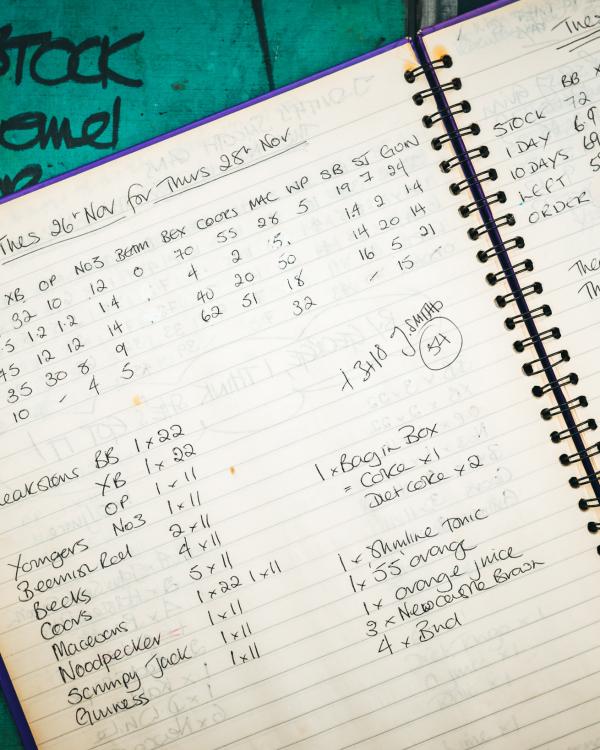 STOCK
Tues 26th Nov for Thurs 28th Nov
XB OP No3 BEAM BEX COORS MAC WP SB ST GUIN
32 10 12 0 70 55 28 5 19 7 24
1.2 1.2 1.4 . 4 2 .5. 14 2 14
12 12 14 . 40 20 50 14 20 14
35 30 8 9 62 51 18 16 5 21
10 - 4 5 32 - 15 -
J. Smith
54
BB 1x22
XB 1x22
Youngers OP 1x11
No3 1x11
Beamish Red 2x11
Becks 4x11
Coors 5x11
Macewans 1x22 1x11
Woodpecker 1x11
Scrumpy Jack 1x11
Guinness 1x11
1 x Bag in Box
= Coke x1
Diet coke x2
1 x Slimline Tonic
1 x 55 orange
1 x orange juice
3 x Newcastle Brown
4 x Bud
BB
STOCK 72
1 DAY 69
10 DAYS
LEFT
ORDER